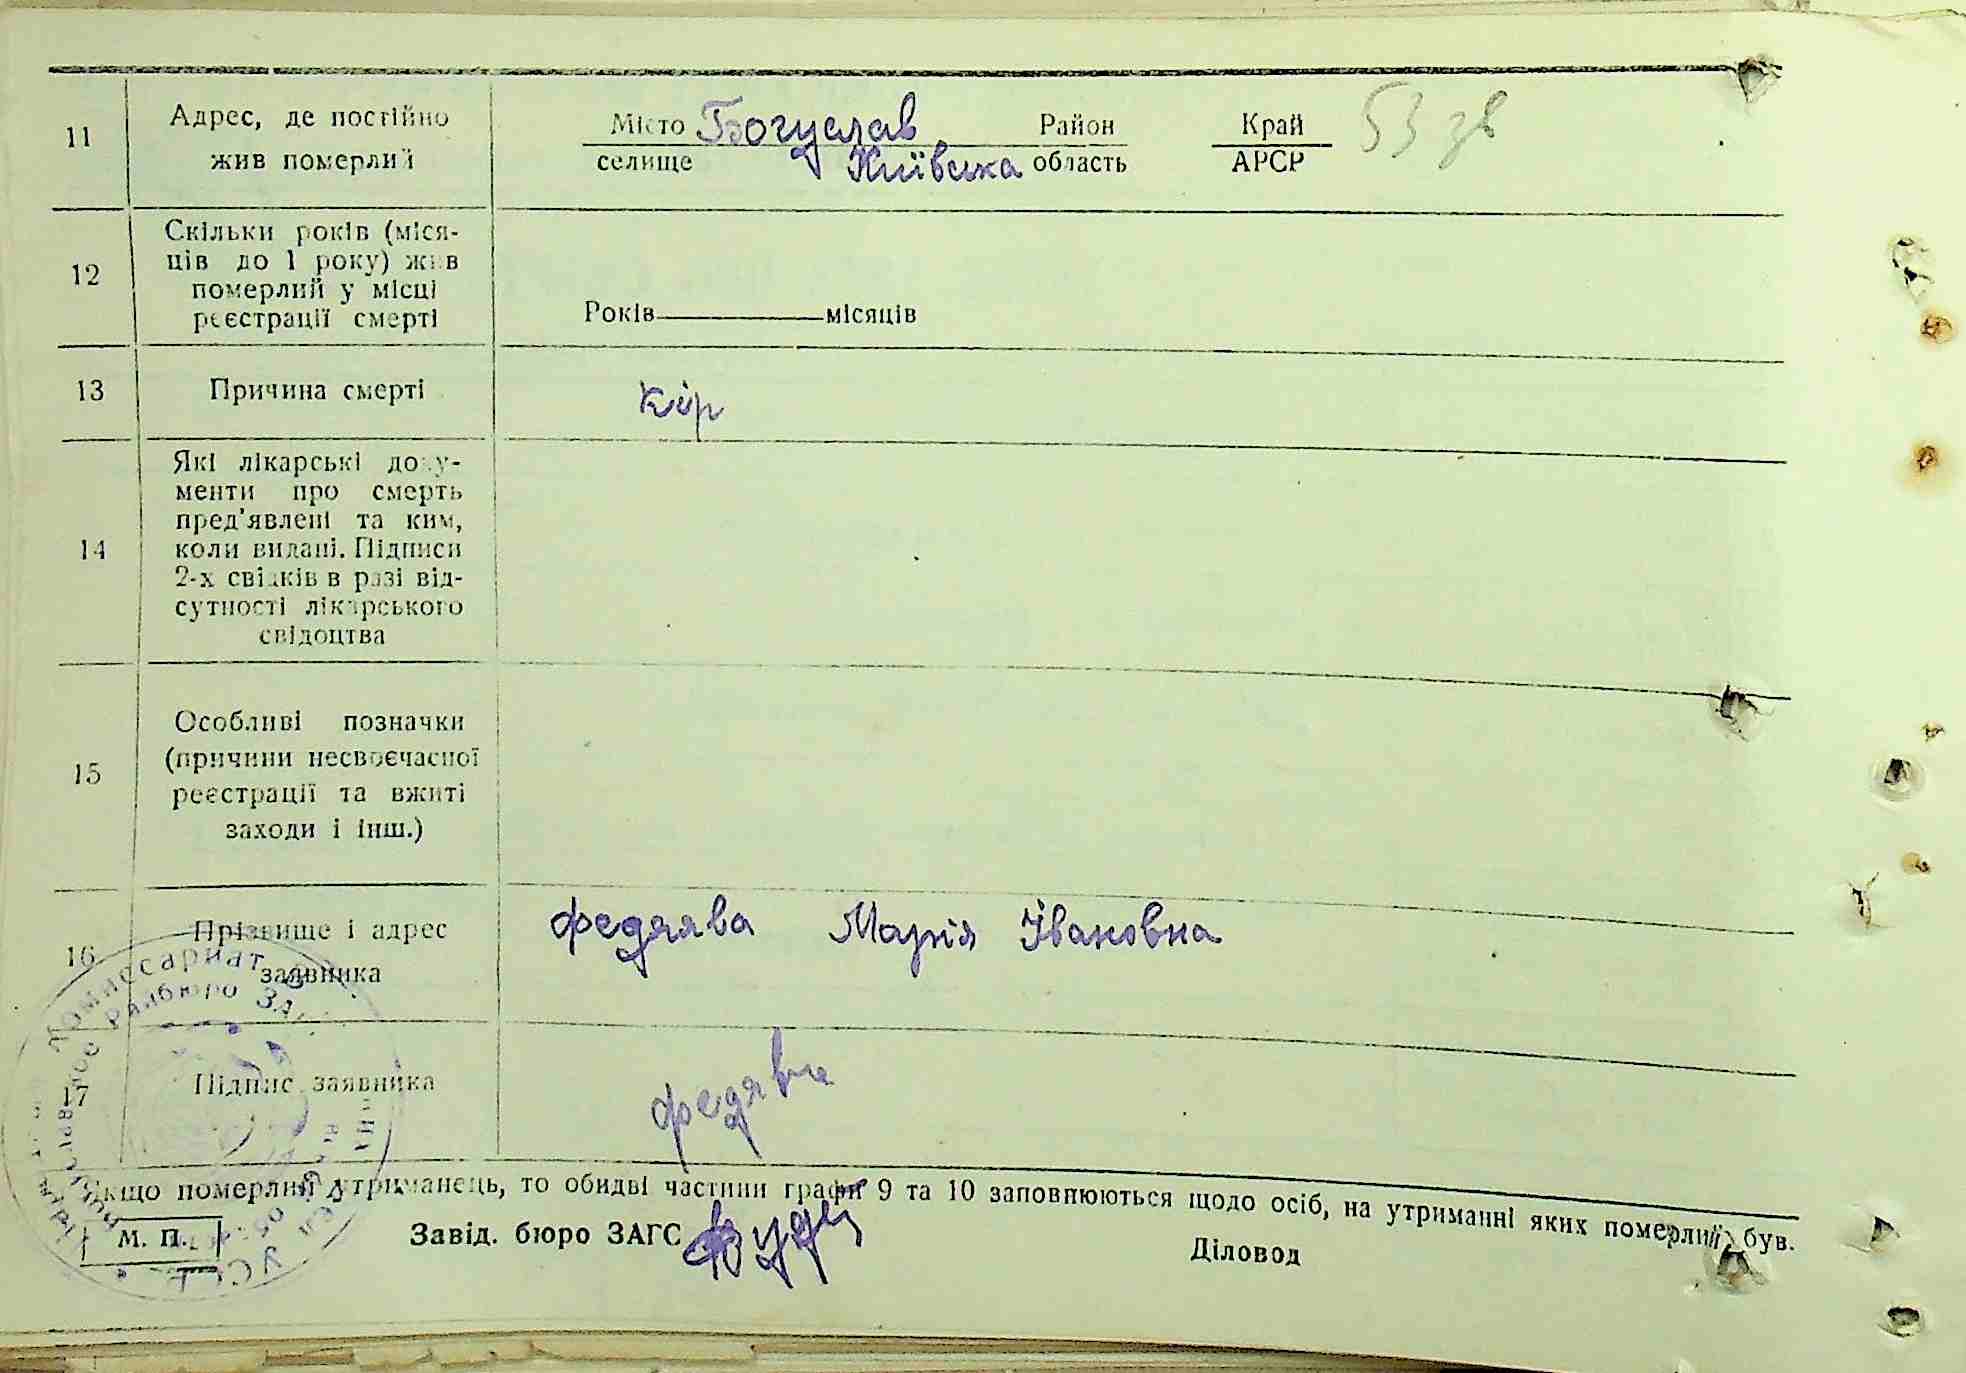 11
Адрес, де постійно
жив померлий
Місто Богуслав Район Край 53 зв
селище Київська область АРСР
12
Скільки років (міся-
ців до 1 року) жив
померлий у місці
реєстрації смерті
Років місяців
13
Причина смерті
кір
14
Які лікарські доку-
менти про смерть
пред'явлені та ким,
коли видані. Підписи
2-х свідків в разі від-
сутності лікарського
свідоцтва
15
Особливі позначки
(причини несвоєчасної
реєстрації та вжиті
заходи і інш.)
16
Прізвище і адрес
заявника
Марія Івановна
17
Підпис заявника
Якщо померлий утриманець, то обидві частини графи 9 та 10 заповнюються щодо осіб, на утриманні яких померлий був.
М. П.
Завід. бюро ЗАГС
Діловод
комиссариат
Райбюро ЗАГС
УССР